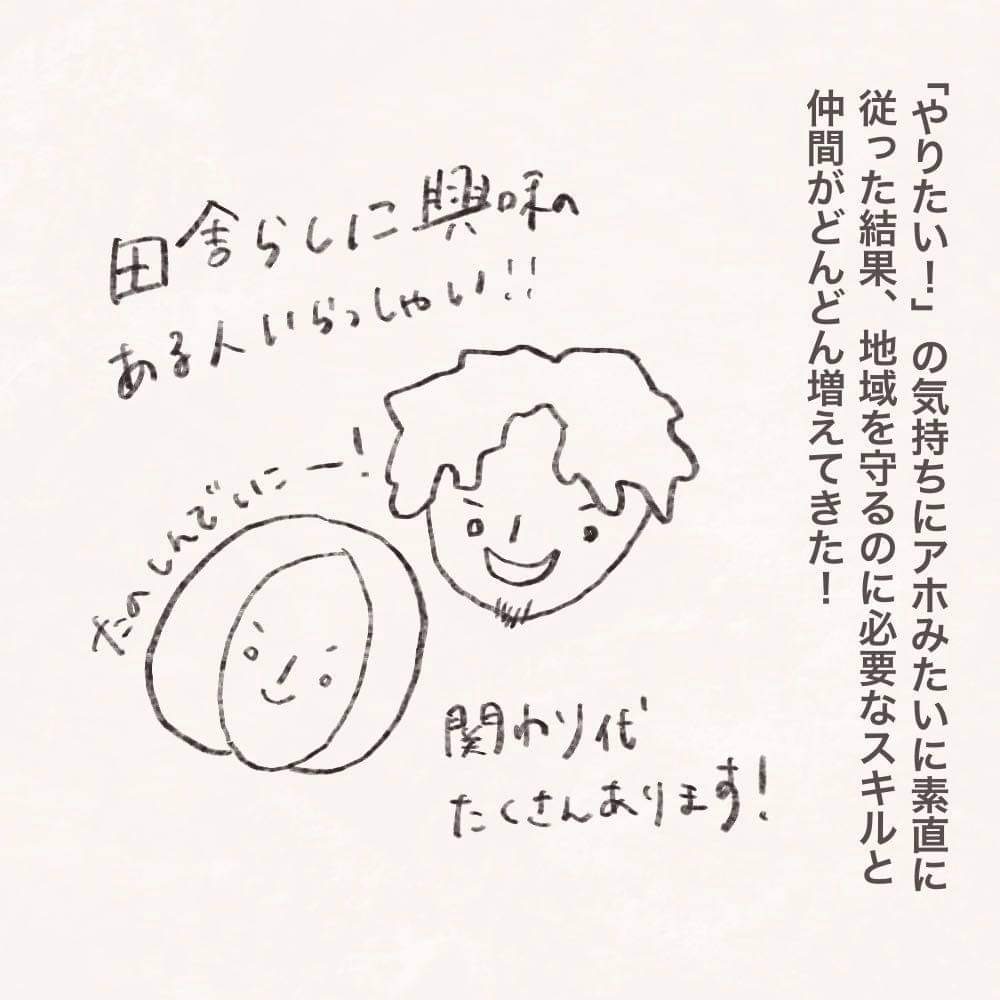 「やりたい！」の気持ちにアホみたいに素直に
従った結果、地域を守るのに必要なスキルと
仲間がどんどん増えてきた！
田舎らしに興味の
ある人いらっしゃい!!
たのしんでいこー!
関わり代
たくさんあります!